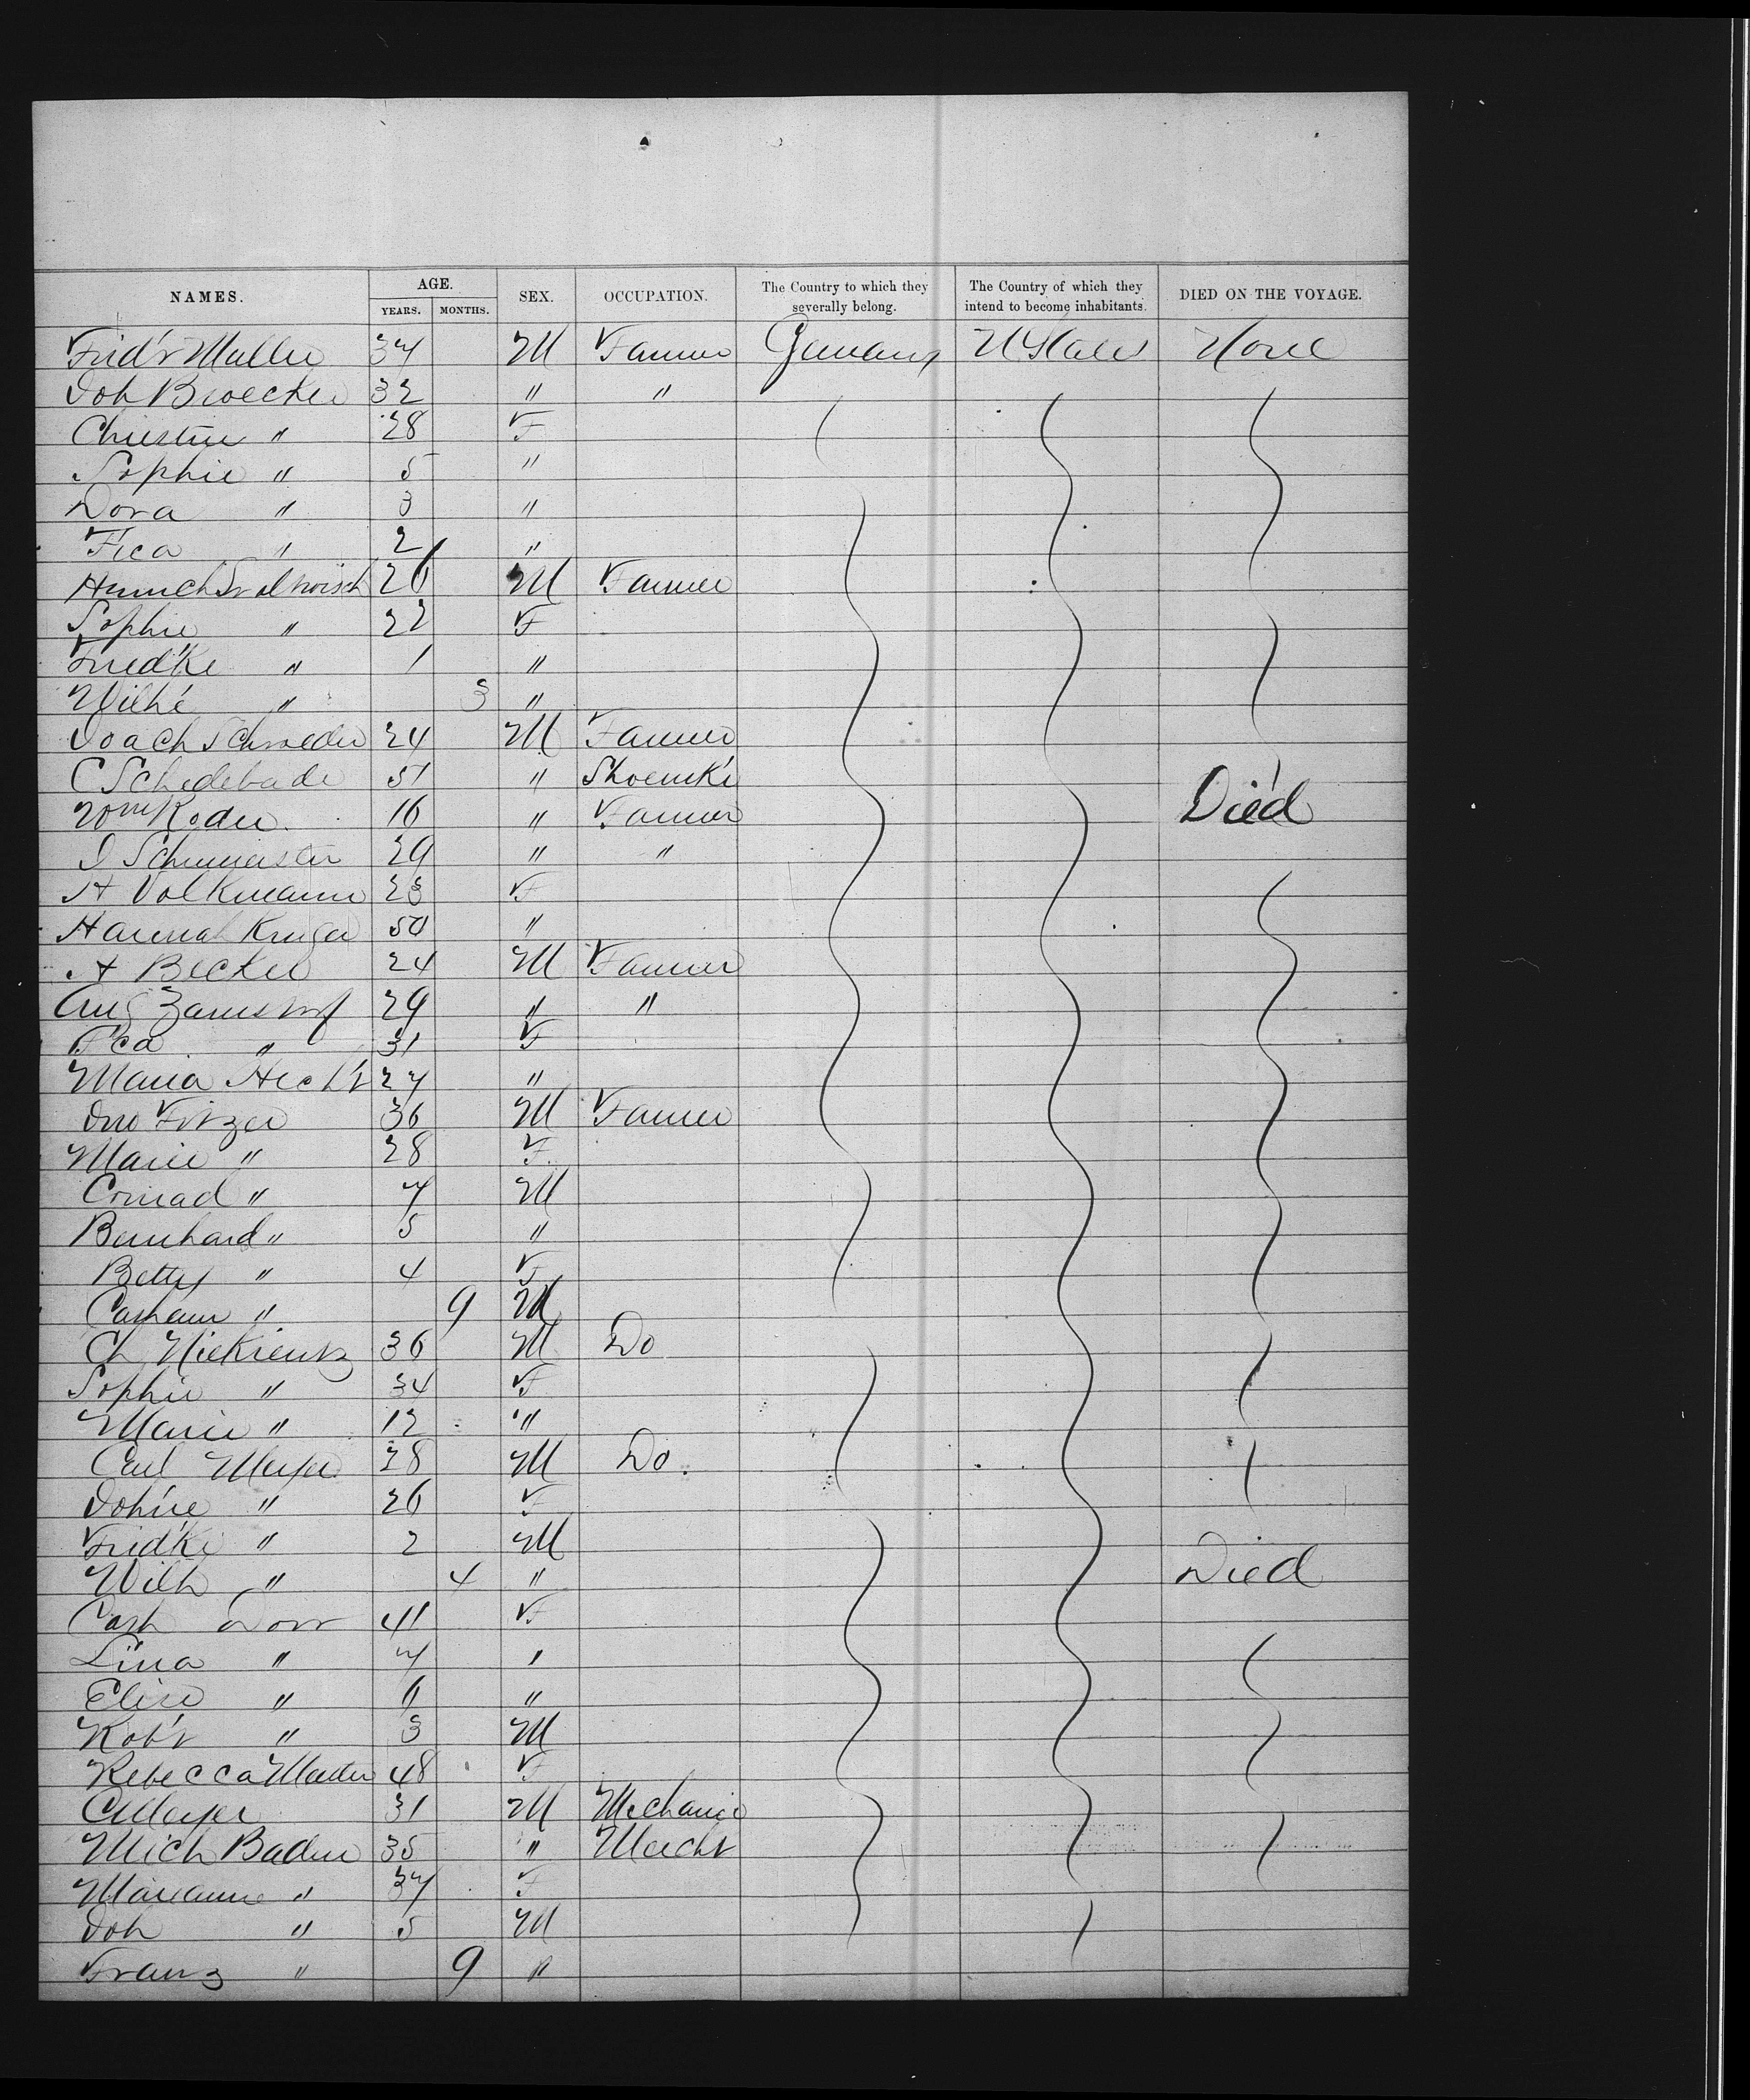 NAMES. AGE. SEX. OCCUPATION. The Country to which they severally belong. The Country of which they intend to become inhabitants. DIED ON THE VOYAGE.
YEARS. MONTHS.
Fried'r Muller 34 M Farmer Germany U States None
Joh Broecker 32 " "
Christine " 28 F
Sophie " 5 "
Dora " 3 "
Fica " 2 "
Heinrich 26 M Farmer
Sophie " 22 F
Fried'ke " 1 "
Wilh'e " 3 "
Joach Schroeder 24 M Farmer
C Schedebade 51 " Shoemk'r
Wm Roder 16 " Farmer Died
J Schumeister 29 " "
A Volkmann 23 F
Hanna Kruger 50 "
A Becker 24 M Farmer
Aug 29 " "
F'ca " 31 F
Maria Hecht 27 "
Jno Fitzer 36 M Farmer
Marie " 28 F
Conrad " 7 M
Bernhard " 5 "
Betty " 4 F
" 9 M
Ch Niekrentz 36 M Do
Sophie " 34 F
Marie " 12 "
Carl Meyer 28 M Do
Joh'ne " 26 F
Fried'k " 2 M
Wilh " 4 " Died
Cath Dorr 41 F
Lina " 7 "
Elise " 6 "
Rob't " 3 M
Rebecca 48 F
C Meyer 31 M Mechanic
Mich Baden 35 " Mercht
Marianne " 37 F
Joh " 5 M
Franz " 9 "